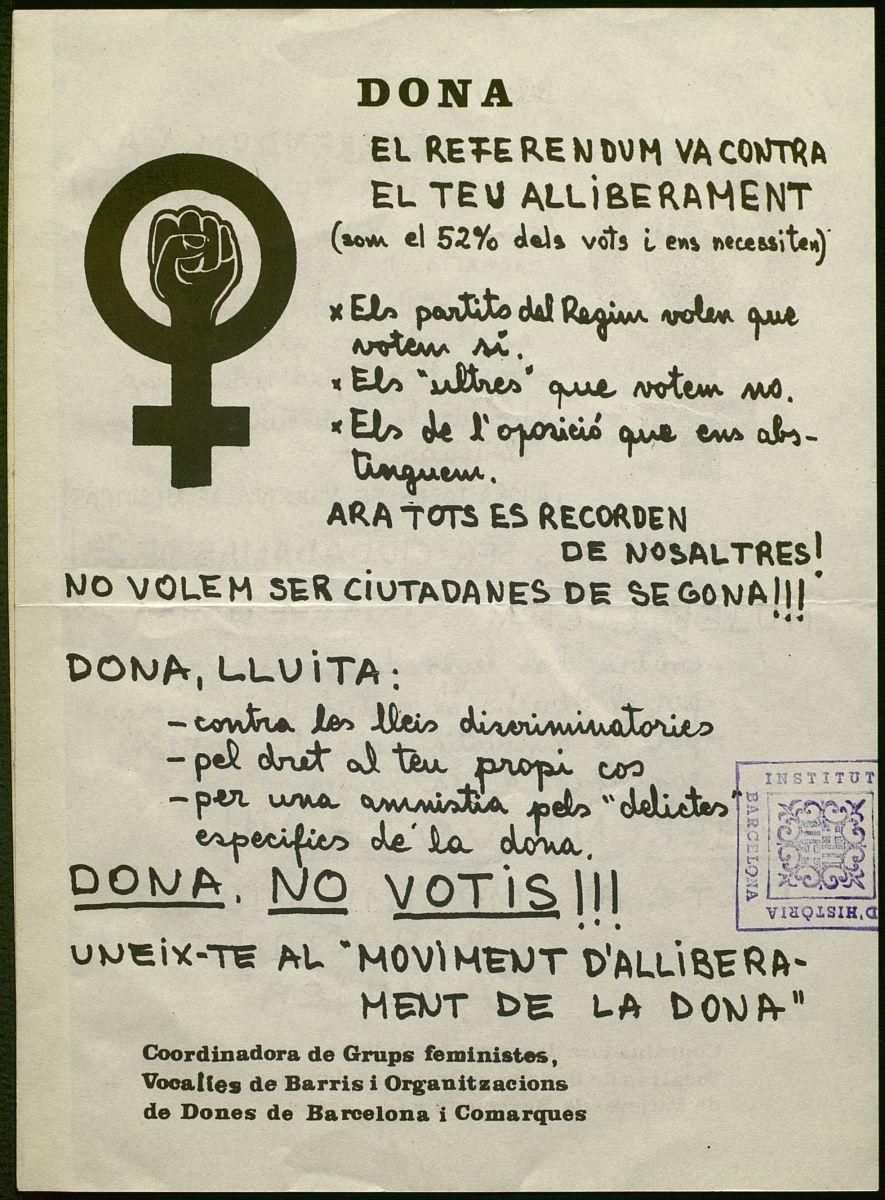 DONA
EL REFERENDUM VA CONTRA
EL TEU ALLIBERAMENT
(som el 52% dels vots i ens necessiten)
x Els partits del Regim volen que
votem sí.
x Els "ultres" que votem no.
x Els de l'oposició que ens abs-
tinguem.
ARA TOTS ES RECORDEN
DE NOSALTRES!
NO VOLEM SER CIUTADANES DE SEGONA!!!
DONA, LLUITA:
- contra les lleis discriminatories
- pel dret al teu propi cos
- per una amnistia pels "delictes"
especifics de la dona.
DONA. NO VOTIS!!!
UNEIX-TE AL "MOVIMENT D'ALLIBERA-
MENT DE LA DONA"
Coordinadora de Grups feministes,
Vocalíes de Barris i Organitzacions
de Dones de Barcelona i Comarques
INSTITUT
D'HISTÒRIA
BARCELONA